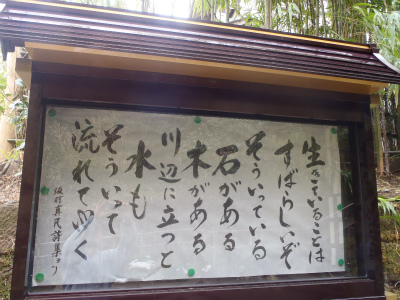 生きていることは
すばらしいぞ
そういっている
石がある
木がある
川辺に立つと
水も
そういって
流れてゆく
坂村真民詩集より